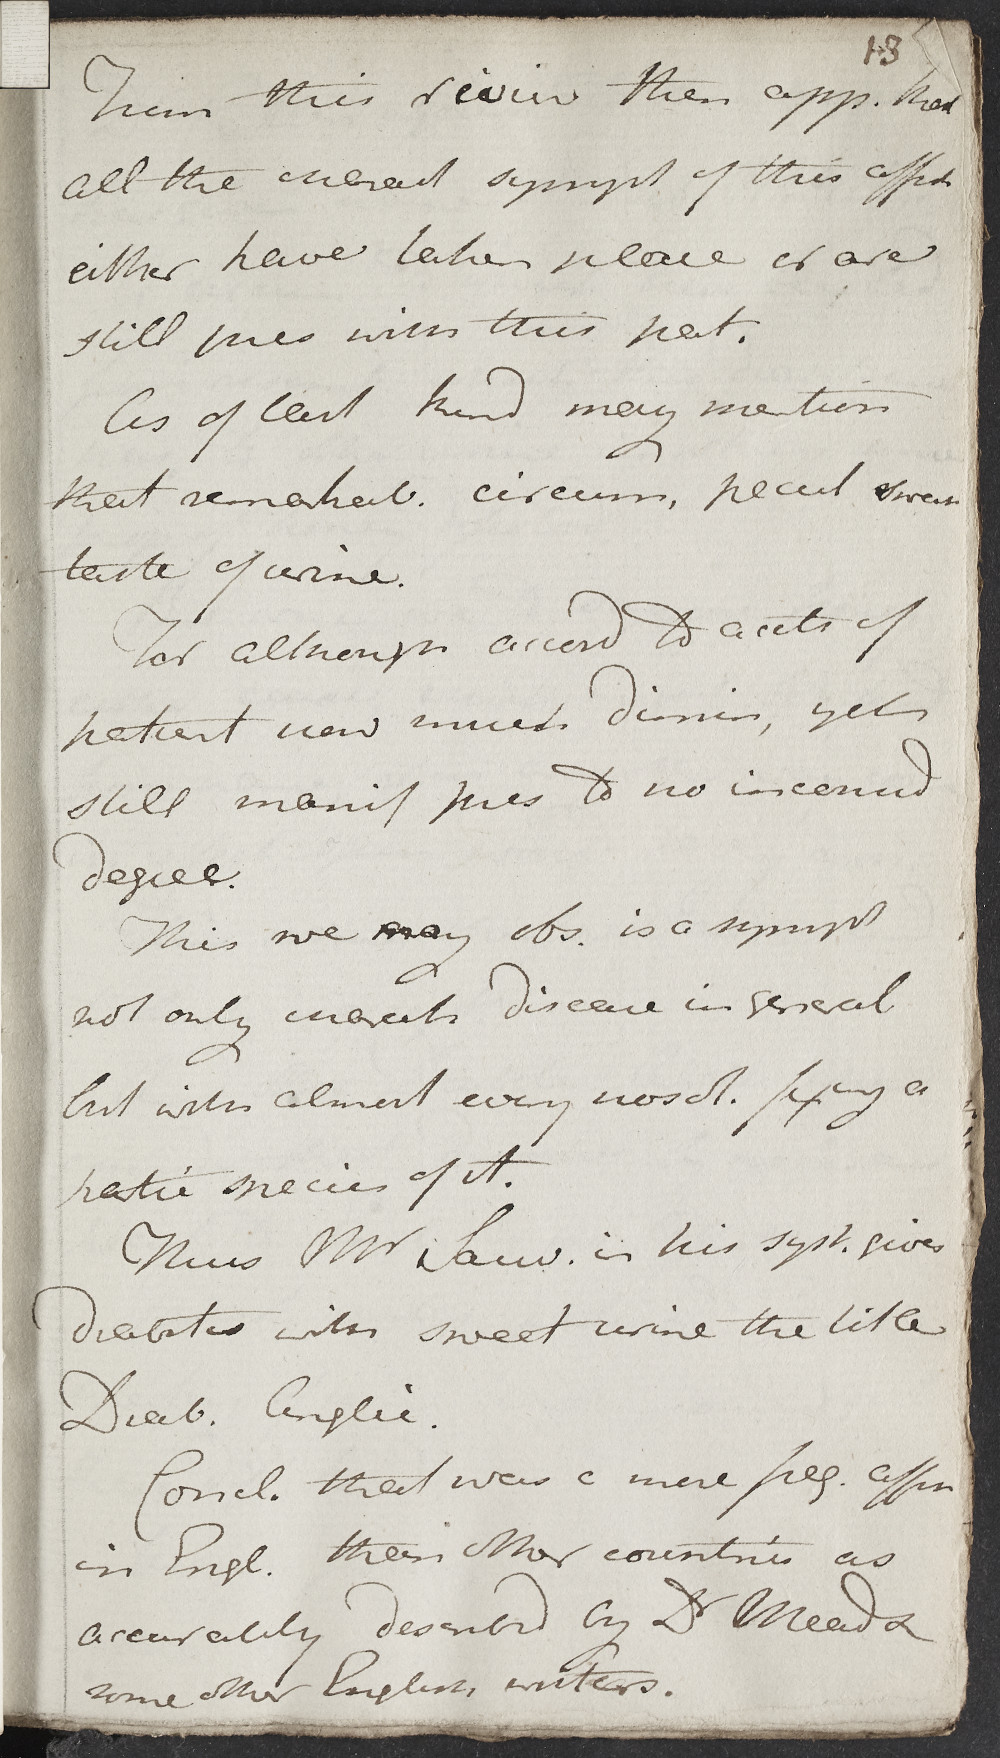 13
From this review then app. that
all the charact sympt of this affn
either have taken place or are
still pres with this pat.
As of last kind may mention
that remarkab. circum, pecul sweet
taste of urine.
For although accord to accts of
patient now much dimin, yet
still manif pres to no inconsid
degree.
This we may obs. is a sympt
not only charact disease in general
but with almost every nosol. fixing a
partic species of it.
Thus Mr Sauv. in his syst. gives
diabetes with sweet urine the title
Diab. Anglic.
Concl. that was a more freq. affn
in Engl. than other countries as
accurately describd by Dr Mead &
some other English writers.